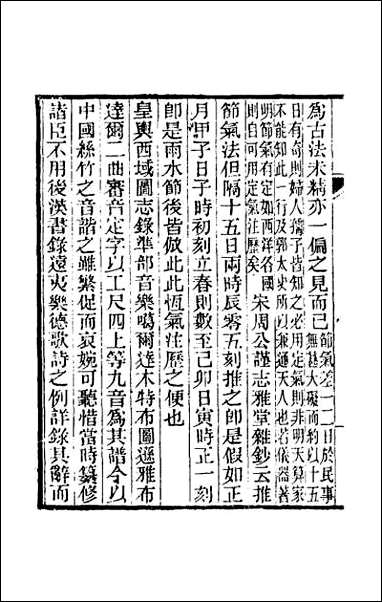 為古法未精亦一偏之見而已節氣差一二日於民事
無甚大礙而約以十五
日有奇則婦人孺子皆知之必用定氣則非明天算家
不能知此一行及郭太史所以兼通天人也若儀器著
明節氣有定如西洋各國
則自可用定氣注歷矣宋周公謹志雅堂雜鈔云推
節氣法但隔十五日兩時辰零五刻推之卽是假如正
月甲子日子時初刻立春則數至己卯日寅時正一刻
卽是雨水節後皆倣此此恆氣注歷之便也
皇輿西域圖志錄準部音樂噶爾達木特布圖遜雅布
達爾二曲審音定字以工尺四上等九音為其譜今以
中國絲竹之音諧之雖繁促而哀婉可聽惜當時纂修
諸臣不用後漢書錄遠夷樂德歌詩之例詳錄其辭而